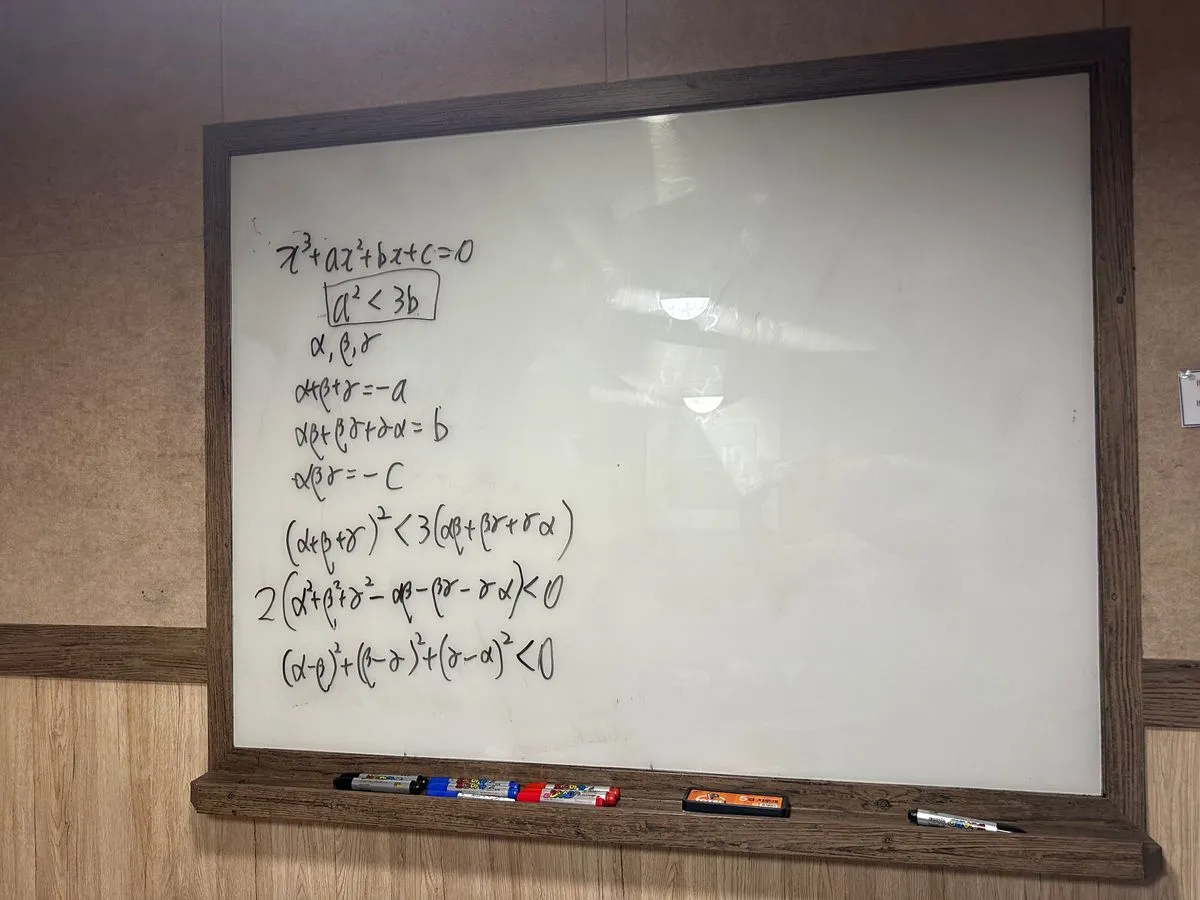 x³+ax²+bx+c=0
a² < 3b
α, β, γ
α+β+γ=-a
αβ+βγ+γα=b
αβγ=-c
(α+β+γ)² < 3(αβ+βγ+γα)
2(α²+β²+γ²-αβ-βγ-γα)<0
(α-β)²+(β-γ)²+(γ-α)²<0